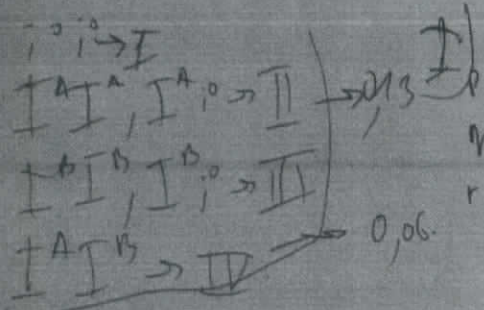 i⁰i⁰ → I
IᴬIᴬ, Iᴬi⁰ → II →
IᴮIᴮ, Iᴮi⁰ → III
IᴬIᴮ → IV → 0,06.